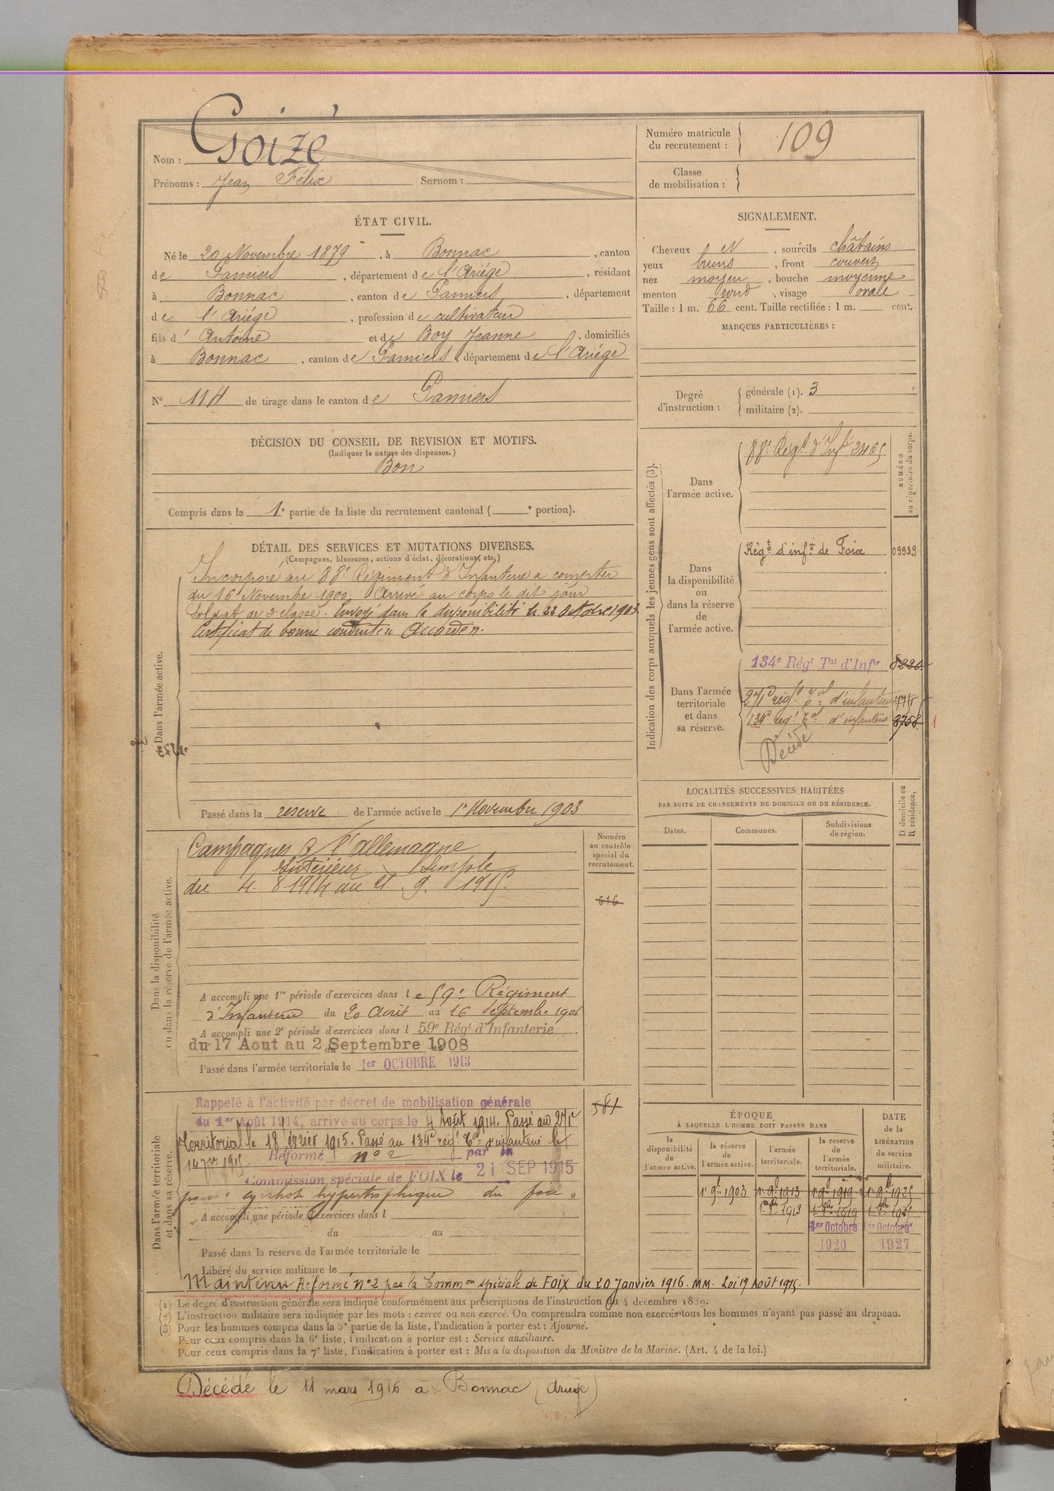 Nom : Goizé
Prénoms : Jean Félix Surnom :
Numéro matricule du recrutement : 109
Classe de mobilisation :
ÉTAT CIVIL.
Né le 20 Novembre 1879, à Bonnac, canton
de Pamiers, département de l'Ariège, résidant
à Bonnac, canton de Pamiers, département
de l'Ariège, profession de cultivateur
fils d' Antoine et de Boy Jeanne, domiciliés
à Bonnac, canton de Pamiers, département de l'Ariège
N° 114 de tirage dans le canton de Pamiers
SIGNALEMENT.
Cheveux et, sourcils châtains
yeux bruns, front couvert
nez moyen, bouche moyenne
menton rond, visage ovale
Taille : 1 m. 66 cent. Taille rectifiée : 1 m. cent.
MARQUES PARTICULIÈRES :
Degré d'instruction : générale (1). 3
militaire (2).
DÉCISION DU CONSEIL DE REVISION ET MOTIFS.
(Indiquer la nature des dispenses.)
Bon
Compris dans la 1e partie de la liste du recrutement cantonal ( e portion).
DÉTAIL DES SERVICES ET MUTATIONS DIVERSES.
(Campagnes, blessures, actions d'éclat, décorations, etc.)
Dans l'armée active.
Incorporé au 88e Régiment d'Infanterie a compter
du 16 Novembre 1900, Arrivé au corps le dit jour
soldat de 2e classe. Envoyé dans la disponibilité le 22 Octobre 1903.
Certificat de bonne conduite Accordé.
Passé dans la reserve de l'armée active le 1er Novembre 1903
Indication des corps auxquels les jeunes gens sont affectés (3).
NUMÉRO au répertoire du corps.
Dans l'armée active.
88e Régt d'Infie 3465
Dans la disponibilité ou dans la réserve de l'armée active.
Régt d'infie de Foix 09939
Dans l'armée territoriale et dans sa réserve.
134e Régt Tal d'Infie
271e régt tal d'infanterie
134e régt tal d'infanterie
Décédé
LOCALITÉS SUCCESSIVES HABITÉES
PAR SUITE DE CHANGEMENTS DE DOMICILE OU DE RÉSIDENCE.
Dates. Communes. Subdivisions de région. D domicile ou R résidence.
Dans la disponibilité ou dans la réserve de l'armée active.
Numéro au contrôle spécial du recrutement.
616
Campagnes C/ l'allemagne
Intérieur Simple
du 4. 8 1914 au 21. 9. 1915.
A accompli une 1re période d'exercices dans le 59e Régiment
d'Infanterie du 20 Août au 16 Septembre 1906
A accompli une 2e période d'exercices dans l 59e Régt d'Infanterie
du 17 Aout au 2 Septembre 1908
Passé dans l'armée territoriale le 1er OCTOBRE 1913
Dans l'armée territoriale et dans sa réserve.
581
Rappelé à l'activité par décret de mobilisation générale
du 1er Août 1914, arrivé au corps le 4 Août 1914. Passé au 271e
territorial le 18 février 1915. Passé au 134e régt tal d'infanterie le
Réformé n° 2 par la
Commission spéciale de FOIX le 21 SEP 1915
pour : cyrrhose hypertrophique du foie.
A accompli une période d'exercices dans l
du au
Passé dans la réserve de l'armée territoriale le
Libéré du service militaire le
Maintenu Réformé n° 2 par la Common spéciale de FOIX du 20 Janvier 1916. MM. Loi 17 Août 1915.
ÉPOQUE
À LAQUELLE L'HOMME DOIT PASSER DANS
la disponibilité de l'armée active. la réserve de l'armée active. l'armée territoriale. la réserve de l'armée territoriale.
DATE DE LA LIBÉRATION du service militaire.
1er 9bre 1903 1er 9bre 1913 1er 9bre 1919 1er 9bre 1925
1er Octobre 1920
1er Octobre 1927
(1) Le degré d'instruction générale sera indiqué conformément aux prescriptions de l'instruction du 4 décembre 1889.
(2) L'instruction militaire sera indiquée par les mots : exercé ou non exercé. On comprendra comme non exercés tous les hommes n'ayant pas passé au drapeau.
(3) Pour les hommes compris dans la 5e partie de la liste, l'indication à porter est : Ajourné.
Pour ceux compris dans la 6e liste, l'indication à porter est : Service auxiliaire.
Pour ceux compris dans la 7e liste, l'indication à porter est : Mis à la disposition du Ministre de la Marine. (Art. 4 de la loi.)
Décédé le 11 mars 1916 à Bonnac (Ariège)